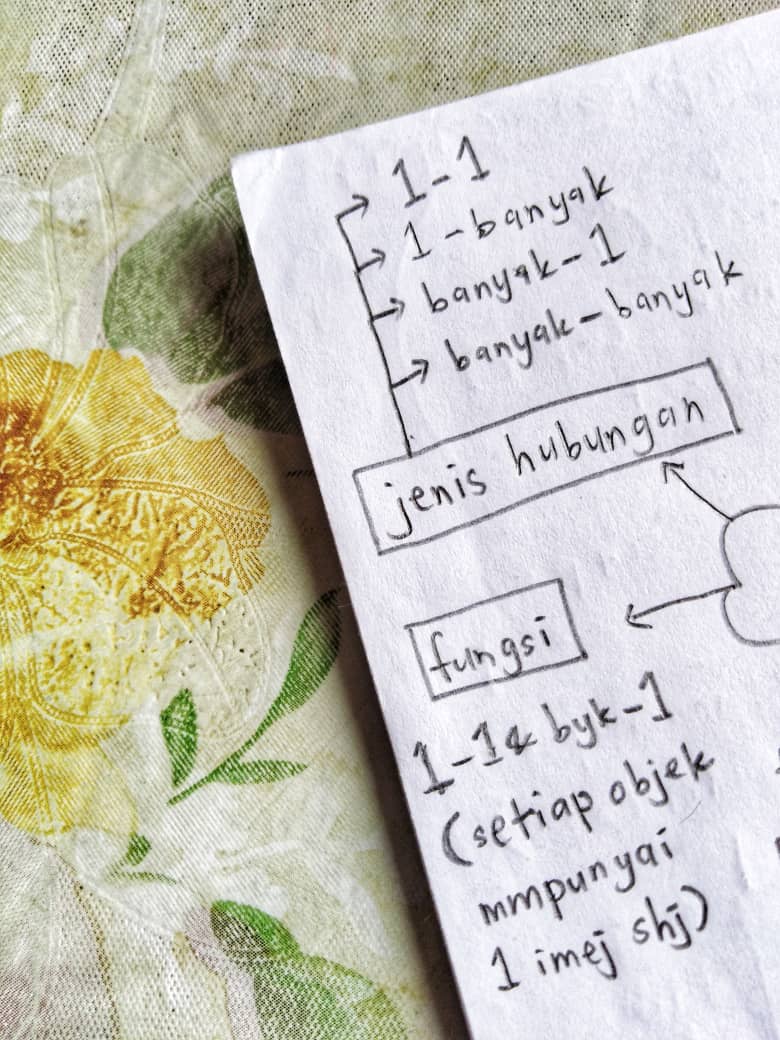 1-1
1-banyak
banyak-1
banyak-banyak
jenis hubungan
fungsi
1-1 & byk-1
(setiap objek
mmpunyai
1 imej shj)